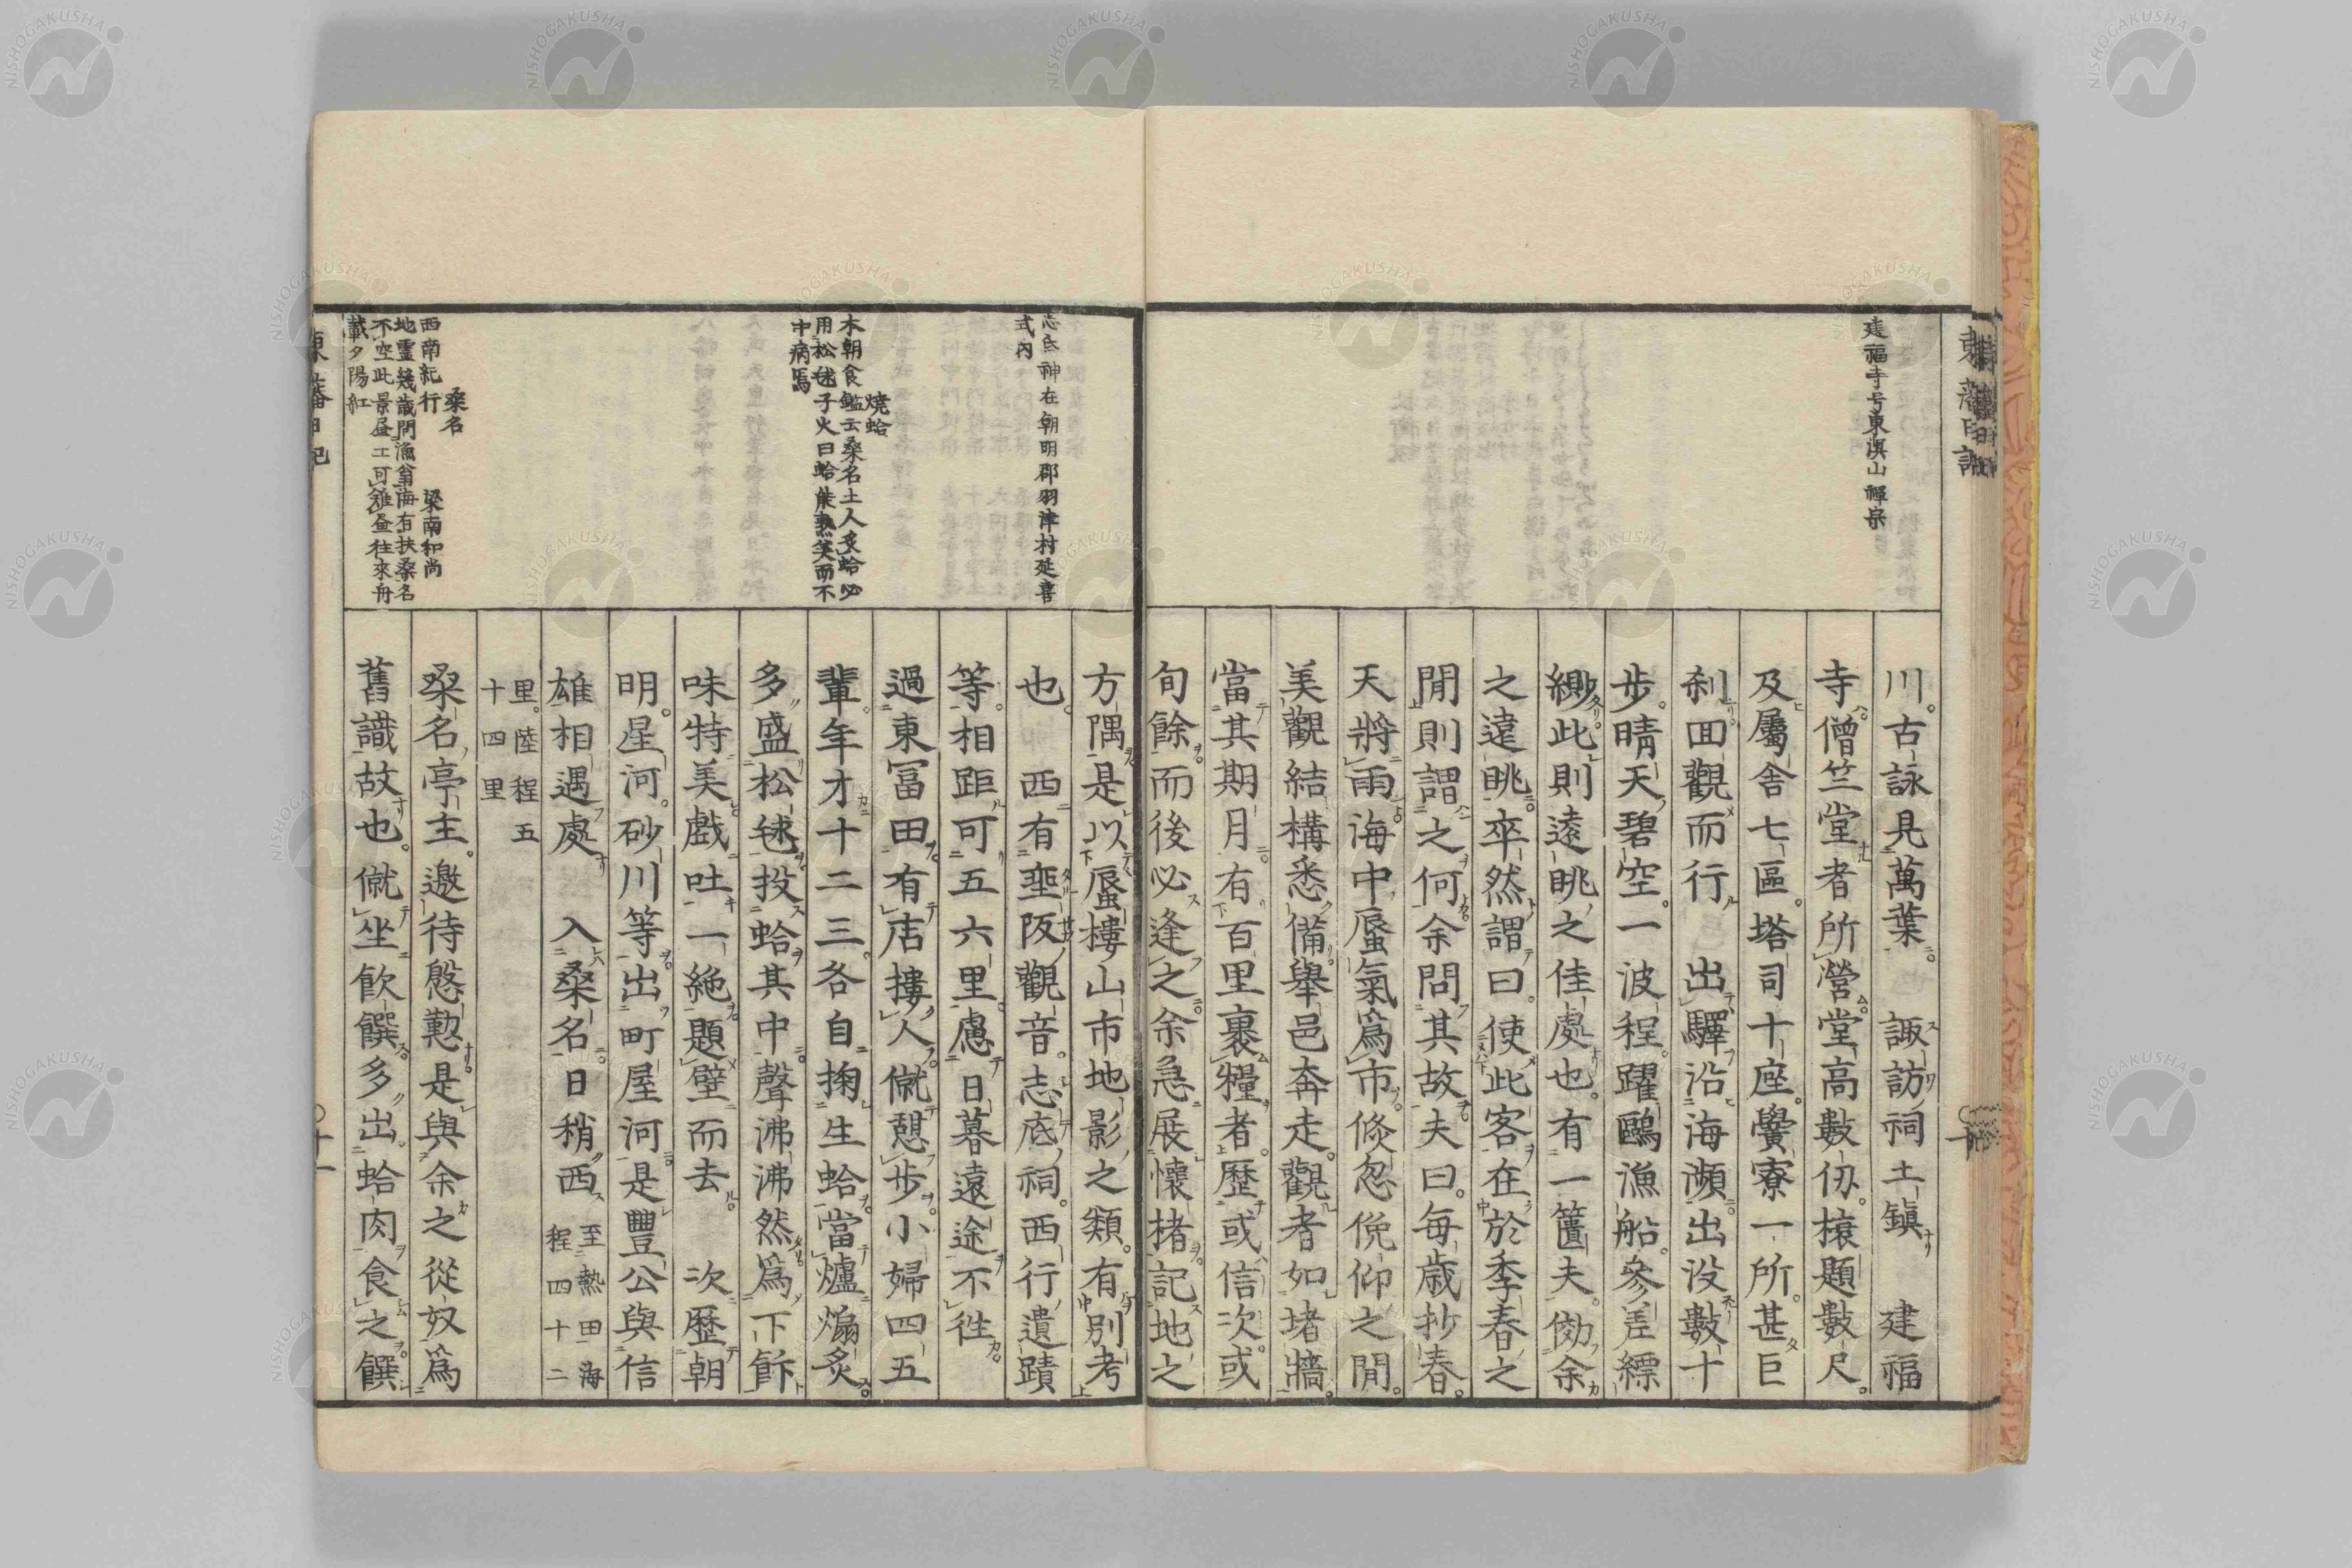 建福寺号東溟山禪宗
川。古詠見萬葉。諏訪祠土鎮 建福
寺。僧竺堂者所營。堂高數仞。榱題數尺。
及屬舎七區。塔司十座。黌寮一所。甚巨
刹。回觀而行 出驛沿海瀕。出没數十
步。晴天碧空。一波程。躍鷗漁船。參差縹
緲。此則遠眺之佳處也。有一篋夫。傚余
之遠眺。卒然謂曰。使此客在於季春之
間則謂之何。余問其故。夫曰。每歳抄春。
天將雨。海中蜃氣爲市。倐忽俛仰之間。
美觀結構悉備。舉邑奔走。觀者如堵牆。
當其期月。有百里裹糧者。歷或信次。或
旬餘。而後必逢之。余急展懷楮。記地之
志氐神在朝明郡羽津村延喜
式内
燒蛤
本朝食鑑云桑名土人炙蛤必
用松毬子火曰蛤能熟美而不
中病焉
桑名
西南紀行 梁南和尚
地靈幾歳問漁翁海有扶桑名
不空此景昼工可難昼往來舟
載夕陽紅
方隅。是以蜃樓山市地影之類。有別考
也。 西有垂阪觀音。志底祠。西行遺蹟
等。相距可五六里。慮日暮遠途不徃。
過東冨田。有店摟人僦憩步。小婦四五
輩。年才十二三。各自掬生蛤。當爐煽炙。
多盛松毬。投蛤其中。聲沸沸然。爲下飰
味特美。戲吐一絶。題壁而去。 次歷朝
明。星河。砂川等。出町屋河。是豐公與信
雄相遇處 入桑名。日稍西 至熱田海
程四十二
里。陸程五
十四里
桑名亭主。邀待慇懃。是與余之從奴爲
舊識故也。僦坐飲饌。多出蛤肉食之饌